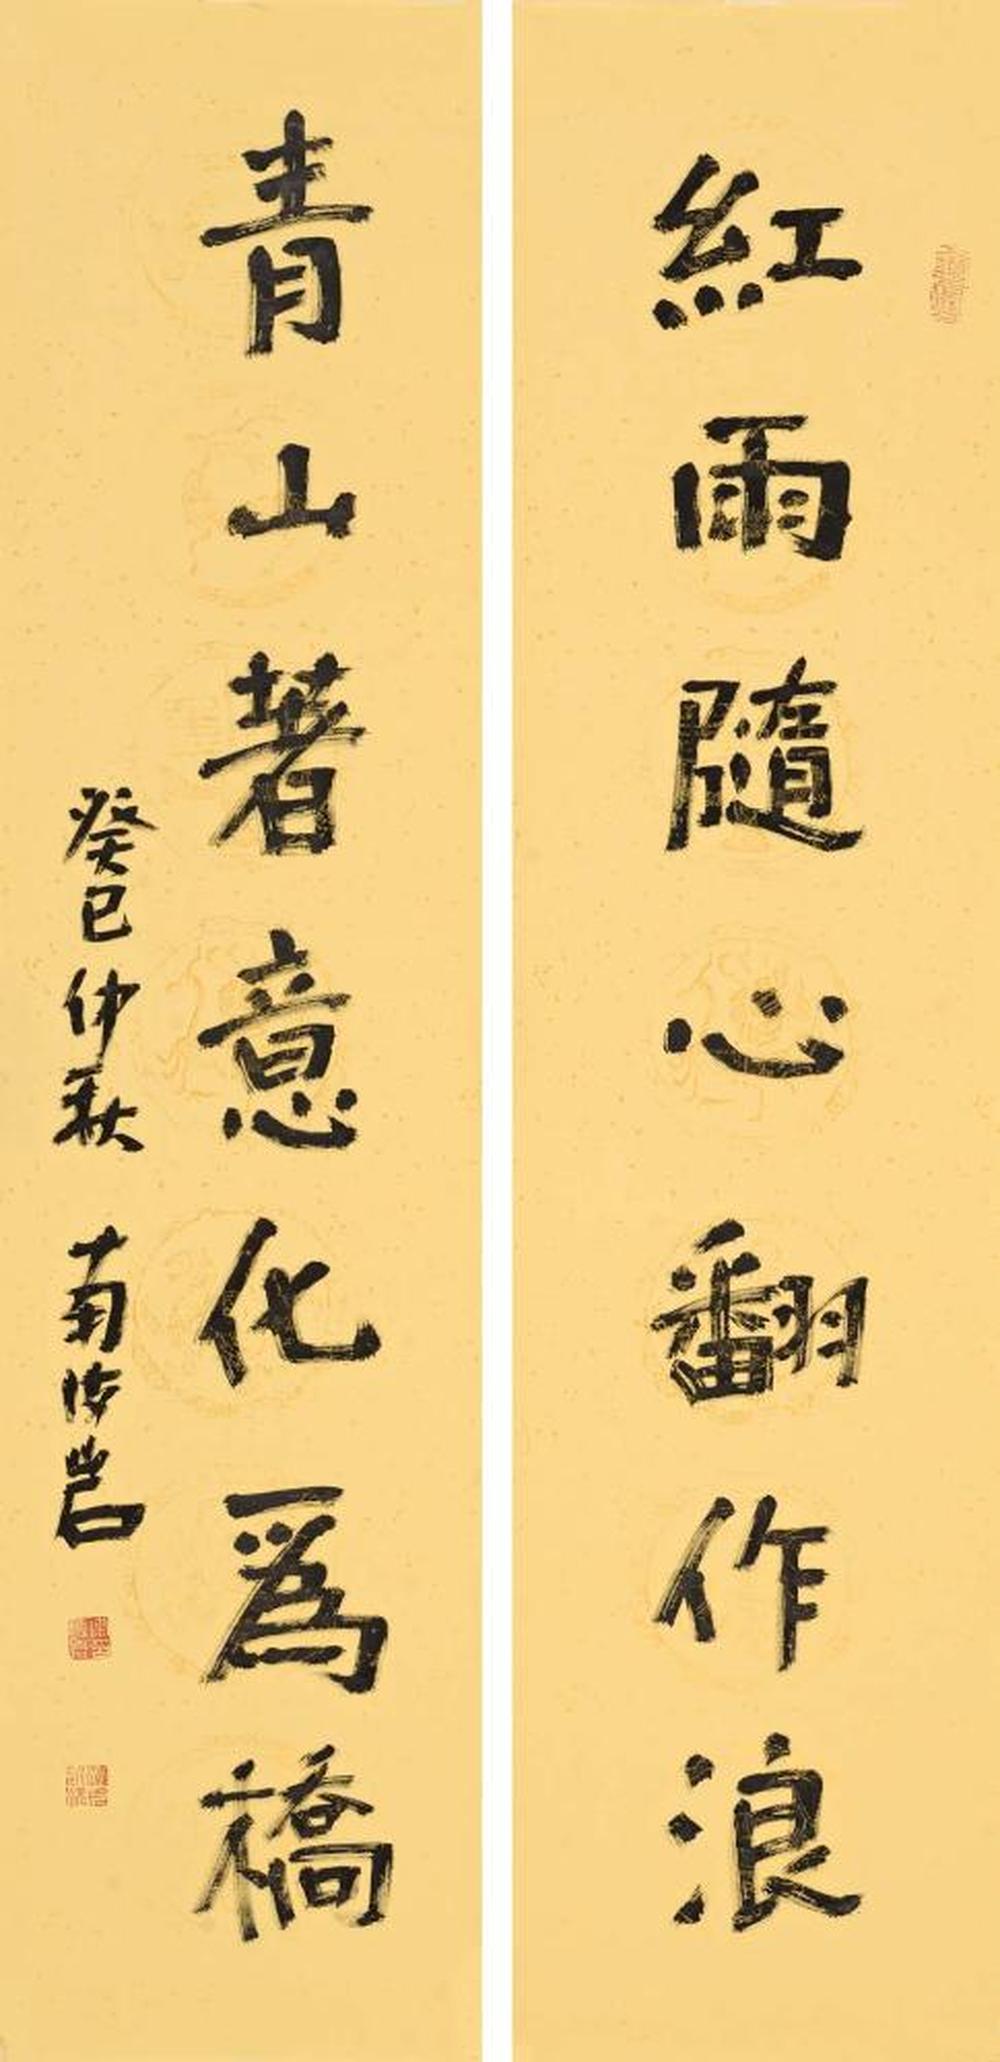 紅雨隨心翻作浪
青山著意化爲橋
癸巳仲秋 南海岩